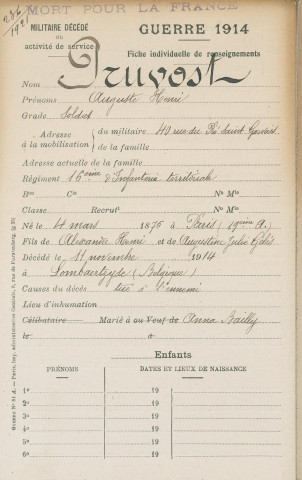 MORT POUR LA FRANCE
1921
MILITAIRE DÉCÉDÉ
en
activité de service
GUERRE 1914
Fiche individuelle de renseignements
Nom Pruvost
Prénoms Auguste Henri
Grade Soldat
Adresse à la mobilisation
du militaire 40 rue du Pré Saint Gervais
de la famille
Adresse actuelle de la famille
Régiment 16ème d'Infanterie territoriale
Bon Cie No Mle
Classe Recrut No Mle
Né le 4 mars 1875 à Paris (19ème A.)
Fils de Alexandre Henri et de Augustine Julie
Décédé le 11 novembre 1914
à Lombaertzyde (Belgique)
Causes du décès tué à l'ennemi
Lieu d'inhumation
Célibataire Marié à ou Veuf de Anna Bailly
le à
Enfants
PRÉNOMS DATES ET LIEUX DE NAISSANCE
1o 19
2o 19
3o 19
4o 19
5o 19
6o 19